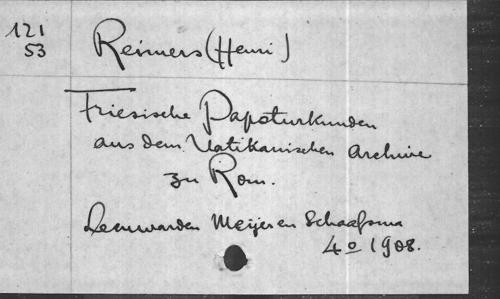 121
53
Reimers (Henri)
Friesische Papsturkunden
aus dem Vatikanischen Archive
zu Rom.
Leeuwarden Meijer en Schaafsma
4o 1908.